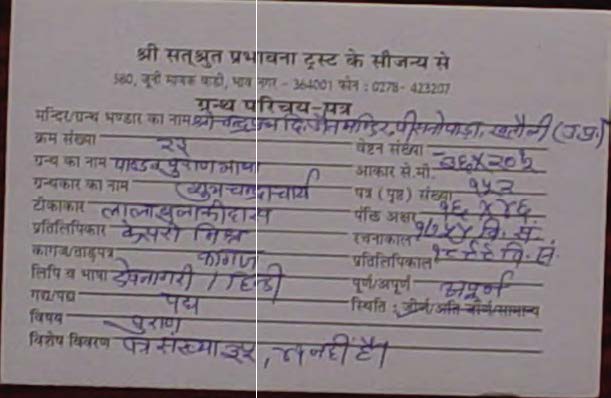 श्री सत्श्रुत प्रभावना ट्रस्ट के सौजन्य से
580, जूनी माणेक वाडी, भाव नगर - 364001 फोन : 0278- 423207
ग्रन्थ परिचय-पत्र
मन्दिर/ग्रन्थ भण्डार का नाम श्री चन्द्रप्रभ दि. जैन मन्दिर, पीसनोपाड़ा, खतौली (उ.प्र.)
क्रम संख्या २५ वेष्टन संख्या
ग्रन्थ का नाम पाण्डव पुराण भाषा आकार से.मी. २६x२०½
ग्रन्थकार का नाम शुभचन्द्राचार्य पत्र (पृष्ठ) संख्या १५२
टीकाकार लाला बुलाकीदास पंक्ति अक्षर १६ x ४६
प्रतिलिपिकार केसरी मिश्र रचनाकाल १७५४ वि. सं.
कागज/ताड़पत्र कागज प्रतिलिपिकाल वि. सं.
लिपि व भाषा देवनागरी / हिन्दी पूर्ण/अपूर्ण अपूर्ण
गद्य/पद्य पद्य स्थिति : जीर्ण/अति जीर्ण/सामान्य
विषय पुराण
विशेष विवरण पत्र संख्या नहीं है।